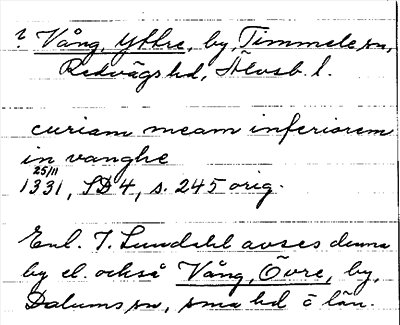 ? Vång, Yttre, by, Timmele sn,
Redvägs hd, Älvsb. l.
curiam meam inferiorem
in vanghe
25/11
1331, SD 4, s. 245 orig.
Enl. I. Lundahl avses denna
by el. också Vång, Övre, by,
Dalums sn, sma hd o län.